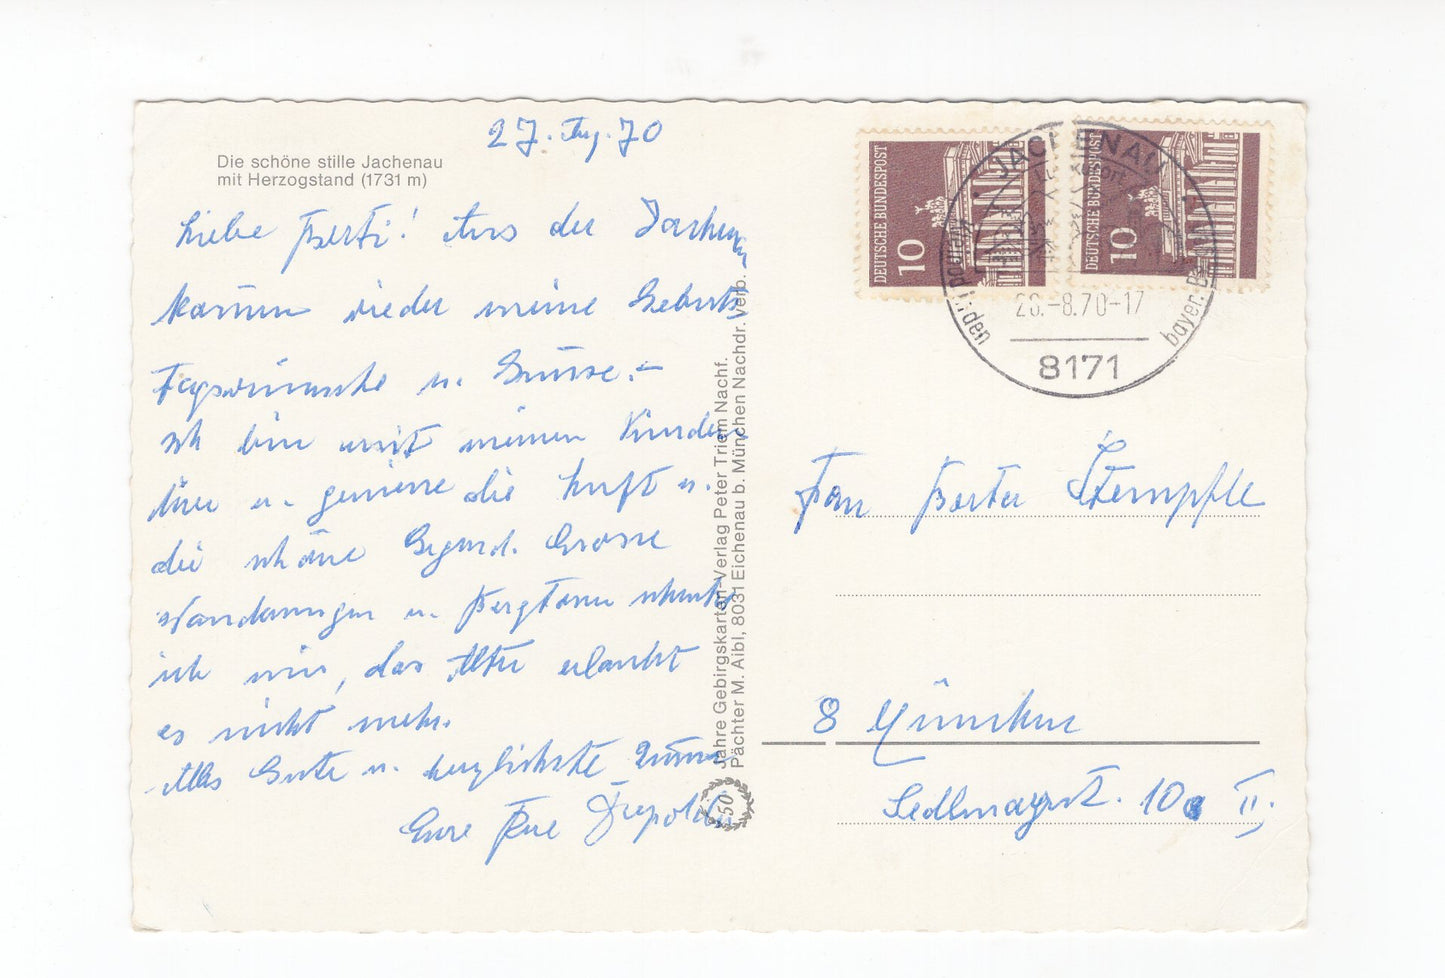 27. Aug. 70
Die schöne stille Jachenau
mit Herzogstand (1731 m)
Liebe Berti! Aus der Jachenau
kommen wieder meine Geburts
Tagswünsche u. Grüsse.-
Ich bin mit meinen Kindern
hier u. geniesse die Luft u.
die schöne Gegend. Grosse
Wanderungen u. Bergtouren schenke
ich mir, das Alter erlaubt
es nicht mehr.
Alles Gute u. herzlichste Grüsse
Eure
50 Jahre Gebirgskarten-Verlag Peter Triem Nachf.
Pächter M. Aibl, 8031 Eichenau b. München Nachdr. verb.
DEUTSCHE BUNDESPOST
10
DEUTSCHE BUNDESPOST
10
JACHENAU
Luftkurort
-8.70-17
8171
bayer.
Frau Berta Stempfle
8 München
Sedlmayrst. 10a II.